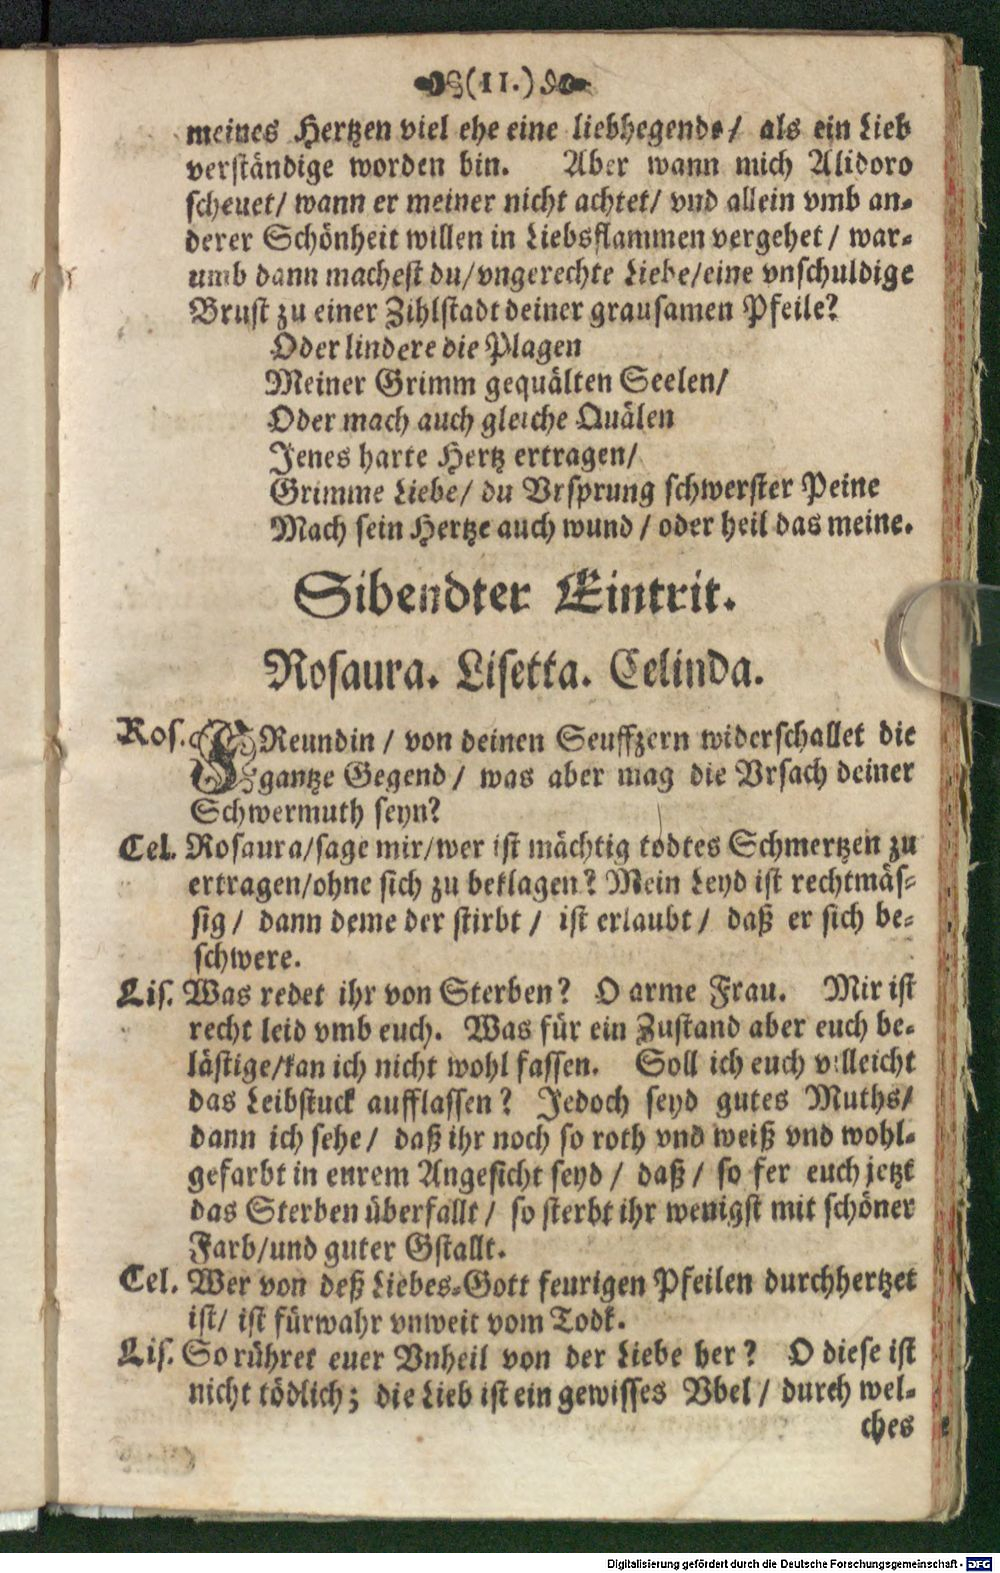 (11.)
meines Hertzen viel ehe eine liebhegende/ als ein Lieb
verständige worden bin. Aber wann mich Alidoro
scheuet/ wann er meiner nicht achtet/ vnd allein vmb an-
derer Schönheit willen in Liebsflammen vergehet/ war-
umb dann machest du/vngerechte Liebe/eine vnschuldige
Brust zu einer Zihlstadt deiner grausamen Pfeile?
Oder lindere die Plagen
Meiner Grimm gequälten Seelen/
Oder mach auch gleiche Quälen
Jenes harte Hertz ertragen/
Grimme Liebe/ du Vrsprung schwerster Peine
Mach sein Hertze auch wund/ oder heil das meine.
Sibendter Eintrit.
Rosaura. Lisetta. Celinda.
Ros. FReundin/ von deinen Seuffzern widerschallet die
gantze Gegend/ was aber mag die Vrsach deiner
Schwermuth seyn?
Cel. Rosaura/sage mir/wer ist mächtig todtes Schmertzen zu
ertragen/ohne sich zu beklagen? Mein Leyd ist rechtmäs-
sig/ dann deme der stirbt/ ist erlaubt/ daß er sich be-
schwere.
Lis. Was redet ihr von Sterben? O arme Frau. Mir ist
recht leid vmb euch. Was für ein Zustand aber euch be-
lästige/kan ich nicht wohl fassen. Soll ich euch villeicht
das Leibstuck aufflassen? Jedoch seyd gutes Muths/
dann ich sehe/ daß ihr noch so roth vnd weiß vnd wohl-
gefarbt in enrem Angesicht seyd/ daß/ so fer euch jetzt
das Sterben überfallt/ so sterbt ihr wenigst mit schöner
Farb/und guter Gstallt.
Cel. Wer von deß Liebes-Gott feurigen Pfeilen durchhertzet
ist/ ist fürwahr vnweit vom Todt.
Lis. So rühret euer Vnheil von der Liebe her? O diese ist
nicht tödlich; die Lieb ist ein gewisses Vbel/ durch wel-
ches
Digitalisierung gefördert durch die Deutsche Forschungsgemeinschaft - DFG